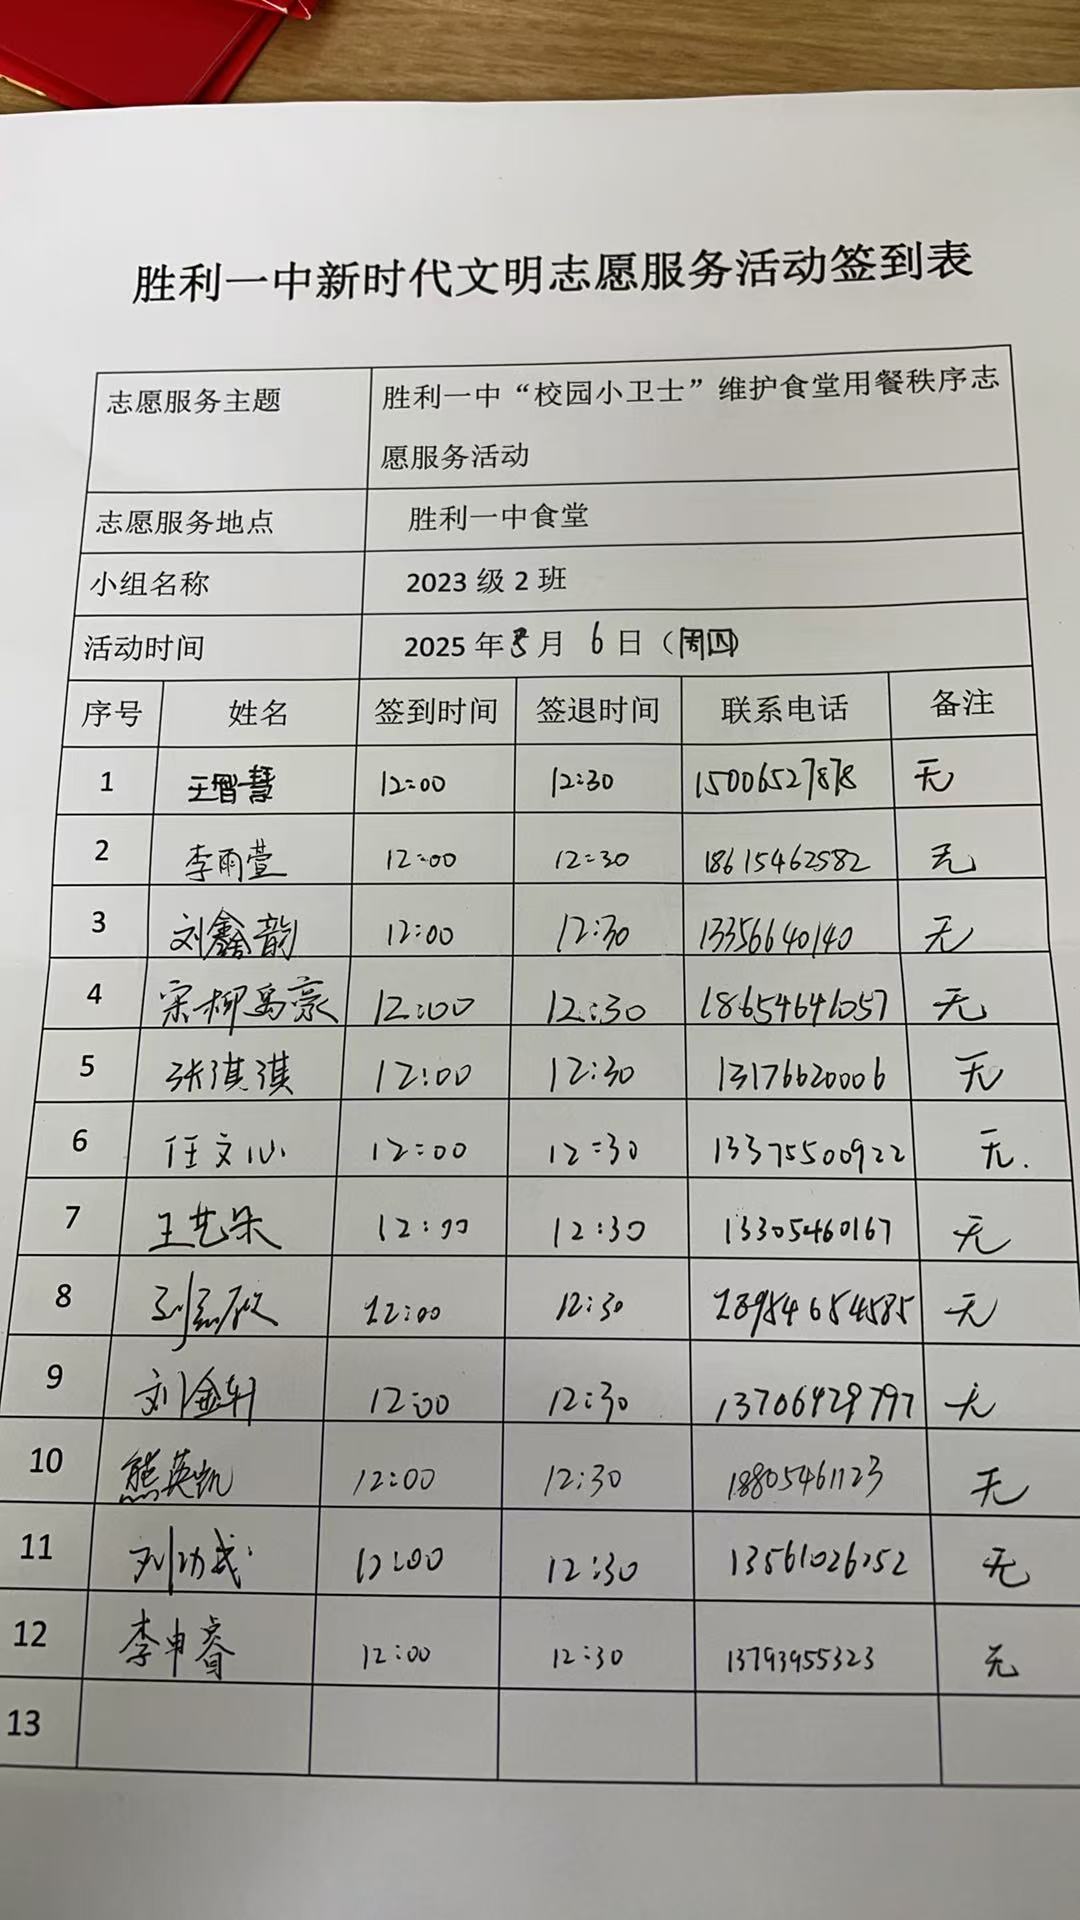 胜利一中新时代文明志愿服务活动签到表
志愿服务主题 胜利一中“校园小卫士”维护食堂用餐秩序志
愿服务活动
志愿服务地点 胜利一中食堂
小组名称 2023 级 2 班
活动时间 2025 年 月 6 日（周四）
序号 姓名 签到时间 签退时间 联系电话 备注
1 王智慧 12:00 12:30 15006527878 无
2 李雨萱 12:00 12:30 18615462582 无
3 刘鑫韵 12:00 12:30 13356640140 无
4 宋柳禹豪 12:00 12:30 18654641057 无
5 张淇淇 12:00 12:30 13176620006 无
6 任文心 12:00 12:30 13375500922 无.
7 王艺朵 12:00 12:30 13305460167 无
8 12:00 12:30 18954654585 无
9 刘金轩 12:00 12:30 13706429797 无
10 熊英凯 12:00 12:30 18805461123 无
11 刘功成 12:00 12:30 13561026252 无
12 李申睿 12:00 12:30 13793955323 无
13